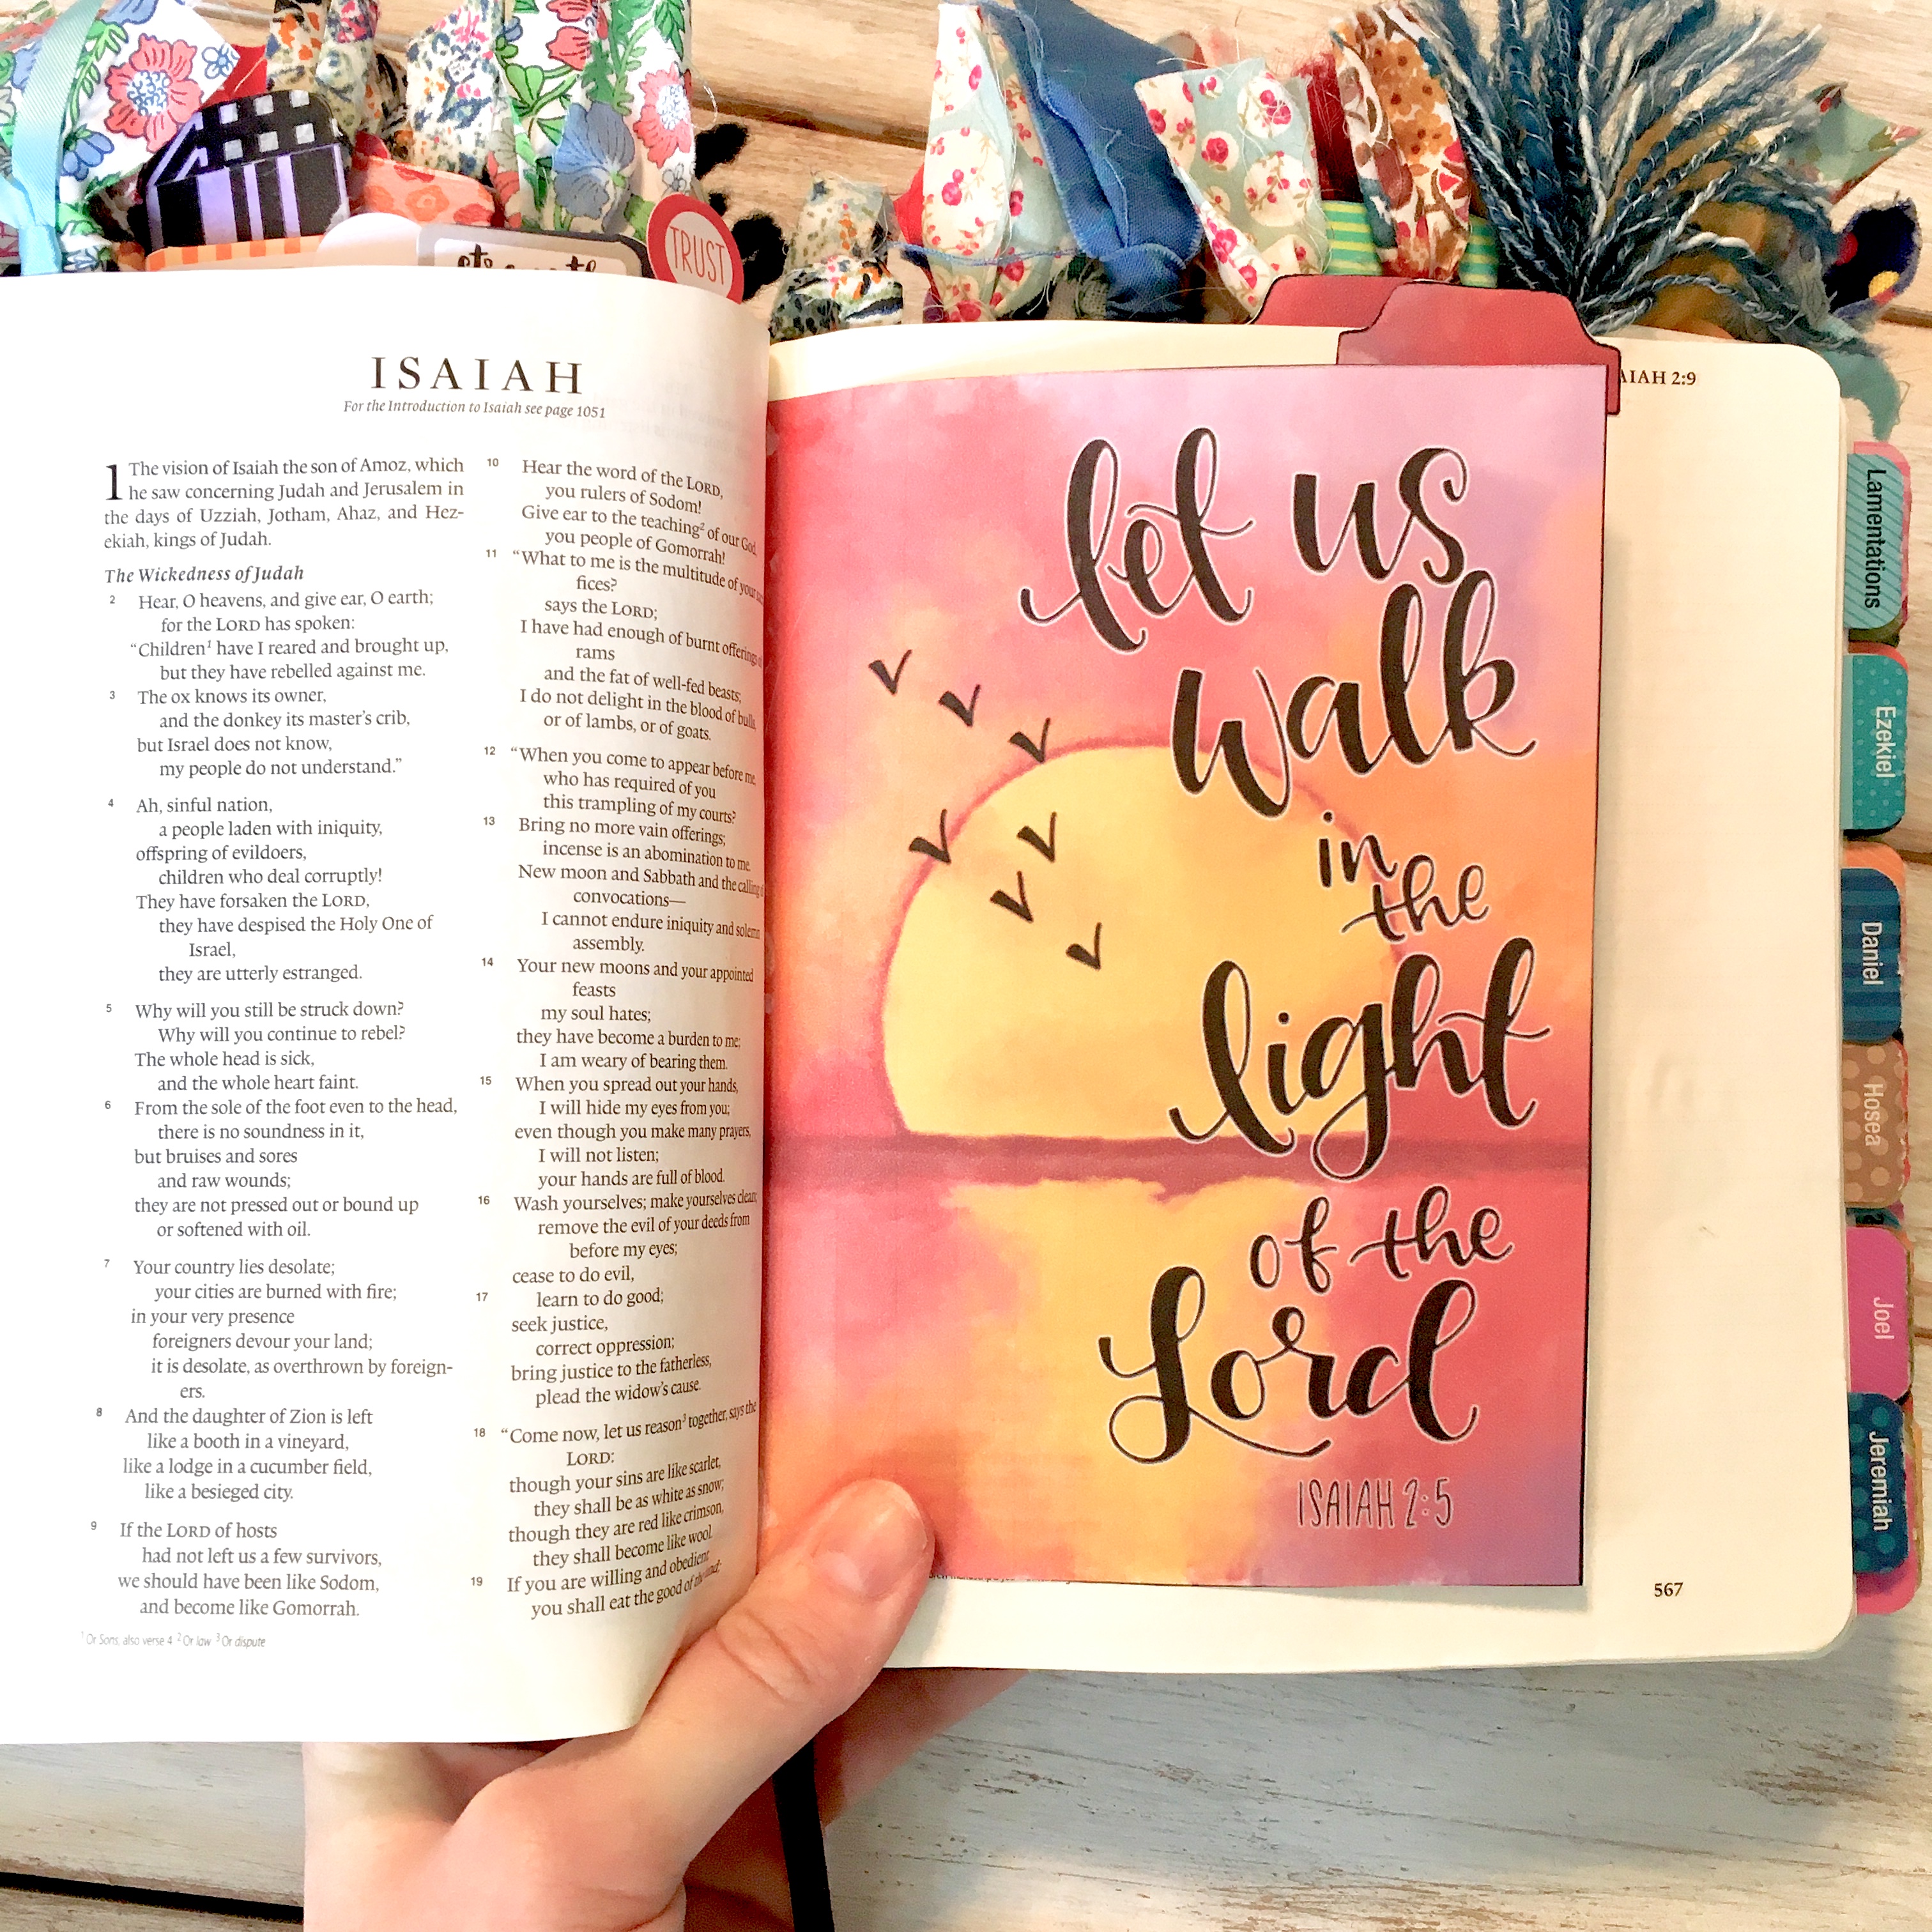 TRUST
ISAIAH
For the Introduction to Isaiah see page 1051
1 The vision of Isaiah the son of Amoz, which
he saw concerning Judah and Jerusalem in
the days of Uzziah, Jotham, Ahaz, and Hez-
ekiah, kings of Judah.
The Wickedness of Judah
2 Hear, O heavens, and give ear, O earth;
for the LORD has spoken:
“Children¹ have I reared and brought up,
but they have rebelled against me.
3 The ox knows its owner,
and the donkey its master’s crib,
but Israel does not know,
my people do not understand.”
4 Ah, sinful nation,
a people laden with iniquity,
offspring of evildoers,
children who deal corruptly!
They have forsaken the LORD,
they have despised the Holy One of
Israel,
they are utterly estranged.
5 Why will you still be struck down?
Why will you continue to rebel?
The whole head is sick,
and the whole heart faint.
6 From the sole of the foot even to the head,
there is no soundness in it,
but bruises and sores
and raw wounds;
they are not pressed out or bound up
or softened with oil.
7 Your country lies desolate;
your cities are burned with fire;
in your very presence
foreigners devour your land;
it is desolate, as overthrown by foreign-
ers.
8 And the daughter of Zion is left
like a booth in a vineyard,
like a lodge in a cucumber field,
like a besieged city.
9 If the LORD of hosts
had not left us a few survivors,
we should have been like Sodom,
and become like Gomorrah.
¹ Or Sons; also verse 4 ² Or law ³ Or dispute
10 Hear the word of the LORD,
you rulers of Sodom!
Give ear to the teaching² of our God,
you people of Gomorrah!
11 “What to me is the multitude of your
fices?
says the LORD;
I have had enough of burnt offerings of
rams
and the fat of well-fed beasts;
I do not delight in the blood of bulls,
or of lambs, or of goats.
12 “When you come to appear before me,
who has required of you
this trampling of my courts?
13 Bring no more vain offerings;
incense is an abomination to me.
New moon and Sabbath and the calling of
convocations—
I cannot endure iniquity and solemn
assembly.
14 Your new moons and your appointed
feasts
my soul hates;
they have become a burden to me;
I am weary of bearing them.
15 When you spread out your hands,
I will hide my eyes from you;
even though you make many prayers,
I will not listen;
your hands are full of blood.
16 Wash yourselves; make yourselves clean;
remove the evil of your deeds from
before my eyes;
cease to do evil,
17 learn to do good;
seek justice,
correct oppression;
bring justice to the fatherless,
plead the widow’s cause.
18 “Come now, let us reason³ together, says the
LORD:
though your sins are like scarlet,
they shall be as white as snow;
though they are red like crimson,
they shall become like wool.
19 If you are willing and obedient,
you shall eat the good of the land;
AIAH 2:9
let us
walk
in
the
light
of the
Lord
ISAIAH 2:5
567
Lamentations
Ezekiel
Daniel
Hosea
Joel
Jeremiah